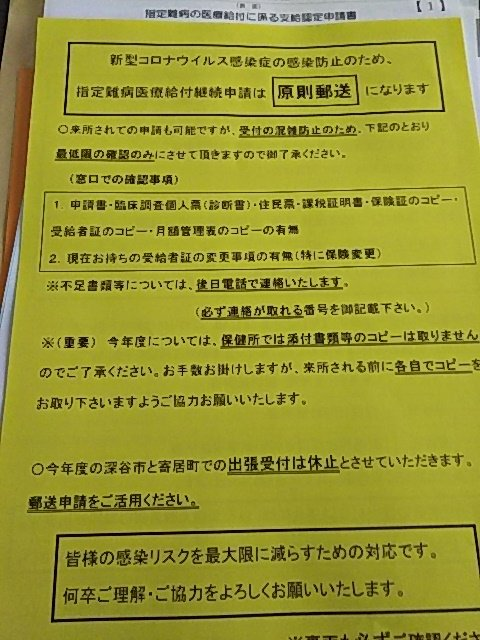 【1】
指定難病の医療給付に係る支給認定申請書
新型コロナウイルス感染症の感染防止のため、
指定難病医療給付継続申請は 原則郵送 になります
○来所されての申請も可能ですが、受付の混雑防止のため、下記のとおり
最低限の確認のみにさせて頂きますので御了承ください。
（窓口での確認事項）
1．申請書・臨床調査個人票（診断書）・住民票・課税証明書・保険証のコピー・
受給者証のコピー・月額管理表のコピーの有無
2．現在お持ちの受給者証の変更事項の有無（特に保険変更）
※不足書類等については、後日電話で連絡いたします。
（必ず連絡が取れる番号を御記載下さい。）
※（重要） 今年度については、保健所では添付書類等のコピーは取りません
のでご了承ください。お手数お掛けしますが、来所される前に各自でコピーを
お取り下さいますようご協力お願いいたします。
○今年度の深谷市と寄居町での出張受付は休止とさせていただきます。
郵送申請をご活用ください。
皆様の感染リスクを最大限に減らすための対応です。
何卒ご理解・ご協力をよろしくお願いいたします。
※裏面も必ずご確認くださ